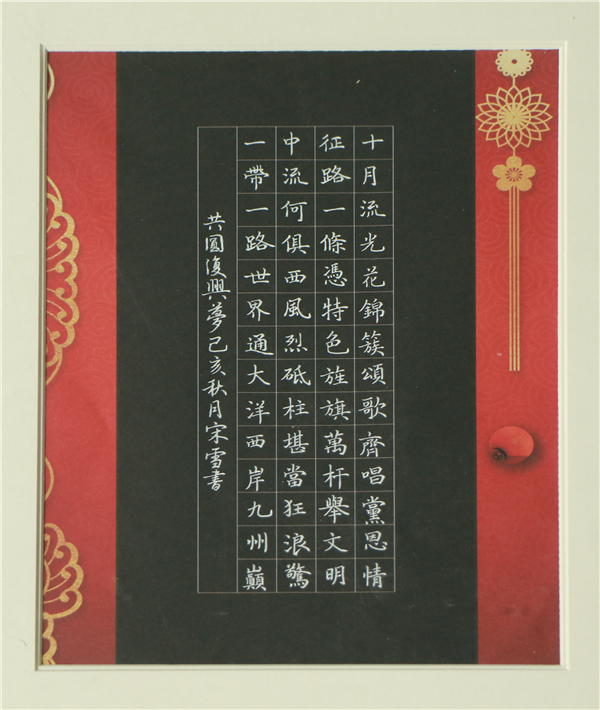 十月流光花錦簇頌歌齊唱黨恩情
征路一條憑特色旌旗萬杆舉文明
中流何俱西風烈砥柱堪當狂浪驚
一帶一路世界通大洋西岸九州巔
共圓復興夢己亥秋月宋雪書